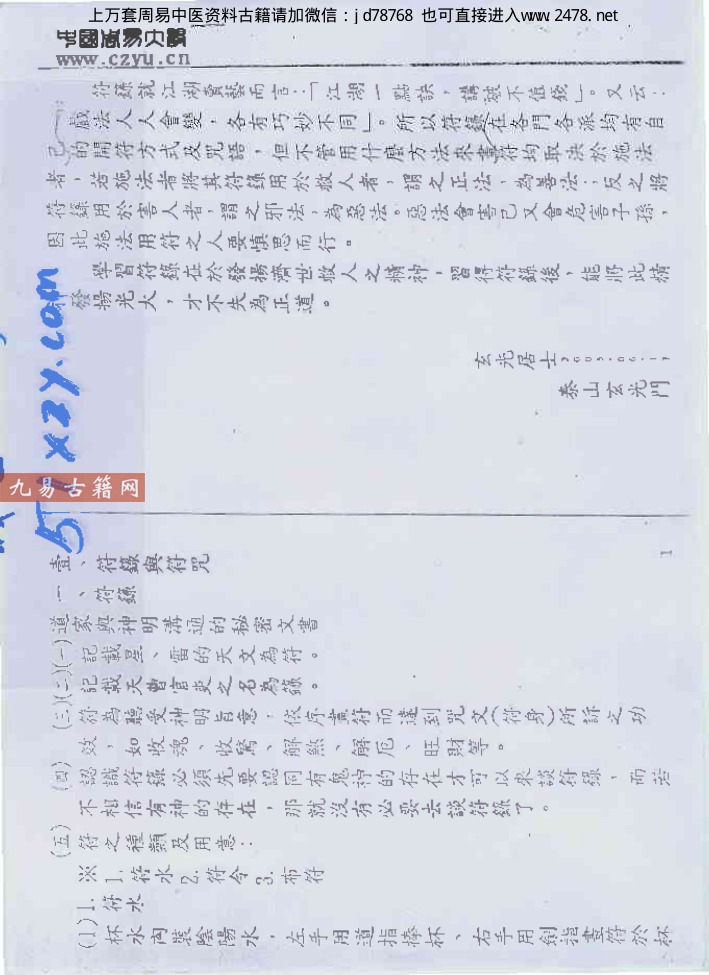 上万套周易中医资料古籍请加微信：jd78768 也可直接进入www.2478.net
中國周易大關
www.czyu.cn
符籙就江湖賣藝而言：「江湖一點訣，講破不值錢」。又云：
「戲法人人會變，各有巧妙不同」。所以符籙在各門各派均有自
己的開符方式及咒語，但不管用什麼方法來畫符均取決於施法
者，若施法者將其符籙用於救人者，謂之正法，為善法；反之將
符籙用於害人者，謂之邪法，為惡法。惡法會害己又會危害子孫，
因此施法用符之人要慎思而行。
學習符籙在於發揚濟世救人之精神，習得符籙後，能將此精
神發揚光大，才不失為正道。
玄光居士
泰山玄光門
51xzy.com
九易古籍网
1
壹、符籙與符咒
一、符籙
道家與神明溝通的秘密文書
(一)記載星、雷的天文為符。
(二)記載天曹官吏之名為籙。
(三)符為聽受神明旨意，依序畫符而達到咒文(符身)所訴之功
效，如收魂、收驚、解煞、解厄、旺財等。
(四)認識符籙必須先要認同有鬼神的存在才可以來談符籙，而若
不相信有神的存在，那就沒有必要去談符籙了。
(五)符之種類及用意：
※1.符水2.符令3.布符
1.符水
(1)杯水內裝陰陽水，左手用道指捧杯、右手用劍指畫符於杯